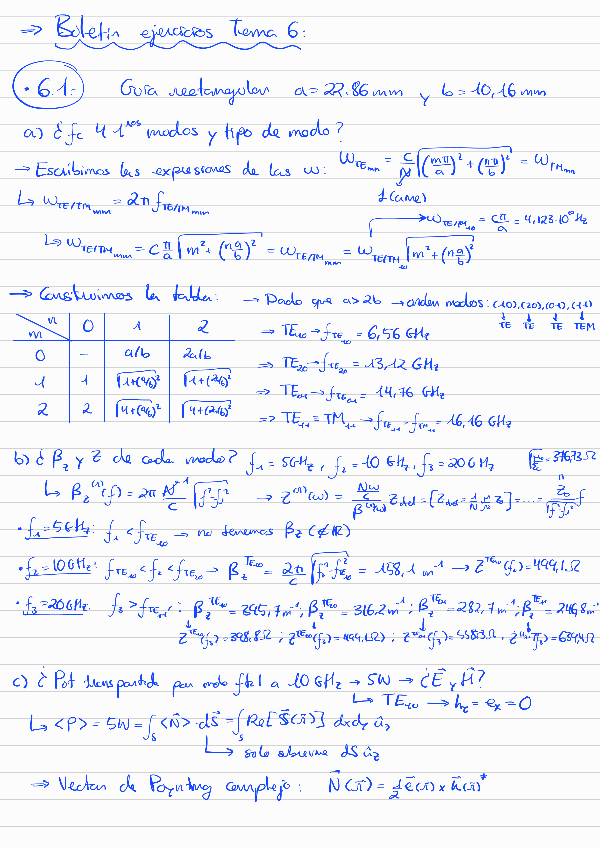 ⇒ Boletín ejercicios Tema 6:
·6.1- Guía rectangular a=22.86mm y b=10,16mm
a) ¿ fc 4 1ros modos y tipo de modo?
→ Escribimos las expresiones de las ω: ω_TEmn = c/N √((mπ/a)² + (nπ/b)²) = ω_TMmn
1 (aire)
↳ ω_TE/TMmn = 2π f_TE/TMmn
ω_TE/TM10 = cπ/a = 4,123·10¹⁰ Hz
↳ ω_TE/TMmn = c π/a √(m² + (na/b)²) = ω_TE/TMmn = ω_TE/TM10 √(m² + (na/b)²)
→ Construimos la tabla: → Dado que a>2b → orden modos: (10),(20),(01),(11)
TE TE TE TEM
m n 0 1 2
0 - a/b 2a/b
1 1 √(1+(a/b)²) √(1+(2a/b)²)
2 2 √(4+(a/b)²) √(4+(2a/b)²)
⇒ TE10 → f_TE10 = 6,56 GHz
⇒ TE20 → f_TE20 = 13,12 GHz
⇒ TE01 → f_TE01 = 14,76 GHz
⇒ TE11 = TM11 → f_TE11 = f_TM11 = 16,16 GHz
b) ¿ βz y Z de cada modo? f1 = 5GHz, f2 = 10 GHz, f3 = 20 GHz
= 376,73 Ω
↳ βz⁽ⁿ⁾(f) = 2π N/c √(f²-f²) → Z⁽ⁿ⁾(ω) = (Nω/c)/β⁽ⁿ⁾(ω) Z = [Z] = ... = Z0/√(f²-f²) f
· f1 = 5GHz: f1 < f_TE10 → no tenemos βz (∉ℝ)
· f2 = 10GHz: f_TE10 < f2 < f_TE20 → βz^TE10 = 2π/c √(f²-f²_TE10) = 158,1 m⁻¹ → Z^TE10(f2) = 499,1 Ω
· f3 = 20GHz. f3 > f_TE11: βz^TE10 = 395,7 m⁻¹; βz^TE20 = 316,2 m⁻¹; βz^TE01 = 282,7 m⁻¹; βz^TE11 = 246,8 m⁻¹
Z^TE10(f3) = 398,8 Ω; Z^TE20(f3) = 499,1 Ω; Z^TE01(f3) = 558,3 Ω; Z^TE11(f3) = 639,4 Ω
c) ¿ Pot transportada por modo f1 a 10 GHz → 5W → ¿ E⃗ y H⃗ ?
↳ TE10 → hz = ex = 0
↳ <P> = 5W = ∫s <N⃗> · dS⃗ = ∫s Re[S⃗(r⃗)] dxdy ûz
↳ solo sobrevive dS ûz
⇒ Vector de Poynting complejo: N⃗(r⃗) = ½ e⃗(r⃗) x h⃗(r⃗)*